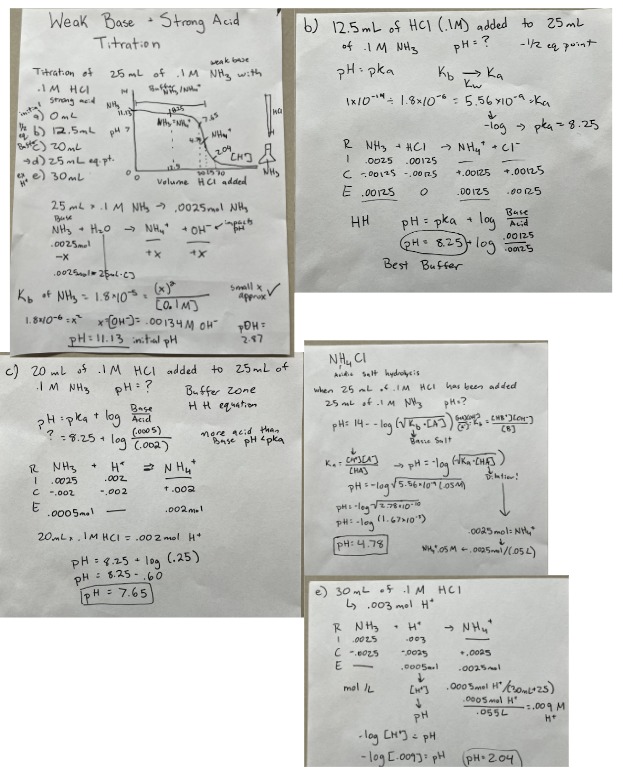 Weak Base + Strong Acid
Titration
Titration of 25 mL of .1M NH3 with
weak base
.1M HCl
strong acid
initial a) 0mL
1/2 eq b) 12.5mL
c) 20mL
→d) 25mL eq. pt.
e) 30mL
Buffer
NH3/NH4+
NH3
11.13
8.25
NH3=NH4+
7.65
NH4+
2.04
[H+]
pH ?
0
0
12.5
Volume HCl added
HCl
NH3
25 mL × .1M NH3 → .0025mol NH3
Base
NH3 + H2O → NH4+ + OH- ← impacts pH
.0025mol
-x +x +x
Kb of NH3 = 1.8×10-5 = (x)² / [0.1M]
small x approx ✓
1.8×10-6 = x² x=[OH-]= .00134M OH-
pOH = 2.87
pH = 11.13 initial pH
b) 12.5 mL of HCl (.1M) added to 25 mL
of .1M NH3 pH = ? -1/2 eq point
pH = pka Kb → Ka
Kw
1×10-14 ÷ 1.8×10-6 = 5.56×10-9 = Ka
-log → pka = 8.25
R NH3 + HCl → NH4+ + Cl-
I .0025 .00125
C -.00125 -.00125 +.00125 +.00125
E .00125 0 .00125 .00125
HH pH = pka + log Base/Acid
pH = 8.25 + log .00125/.00125
Best Buffer
c) 20 mL of .1M HCl added to 25 mL of
.1M NH3 pH = ? Buffer zone
HH equation
pH = pka + log Base/Acid
? = 8.25 + log (.0005)/(.002)
more acid than
Base pH < pka
R NH3 + H+ ⇌ NH4+
I .0025 .002
C -.002 -.002 +.002
E .0005mol — .002mol
20mL × .1M HCl = .002mol H+
pH = 8.25 + log (.25)
pH = 8.25 - .60
pH = 7.65
NH4Cl
Acidic salt hydrolysis
when 25 mL of .1M HCl has been added
25 mL of .1M NH3 pH = ?
pH = 14 - -log (√Kb·[A]) Kb = [HB+][OH-]/[B]
Basic Salt
Ka = [H+][A]/[HA] → pH = -log (√Ka·[HA])
Dilution!
pH = -log √5.56×10-9 (.05M)
pH = -log √2.78×10-10
pH = -log (1.67×10-5)
pH = 4.78
.0025mol = NH4+
NH4+ .05M ← .0025mol/(.05L)
e) 30 mL of .1M HCl
↳ .003 mol H+
R NH3 + H+ → NH4+
I .0025 .003 —
C -.0025 -.0025 +.0025
E — .0005mol .0025mol
mol/L [H+] .0005mol H+/(30mL+25)
.0005mol H+/.055L = .009 M H+
pH
-log [H+] = pH
-log [.009] = pH pH = 2.04